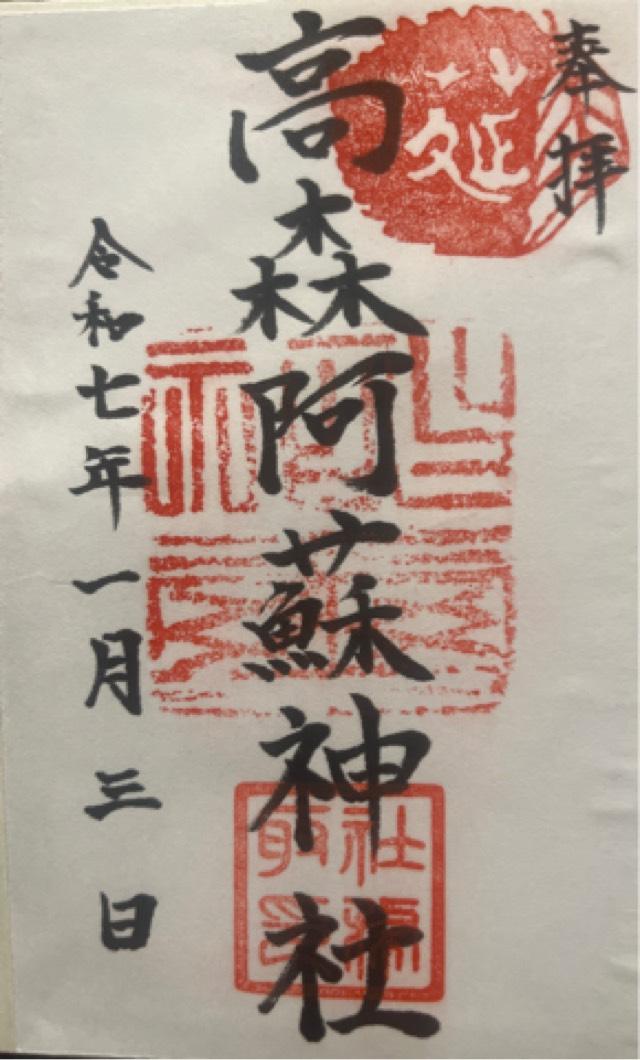 奉拝
高森阿蘇神社
令和七年一月三日